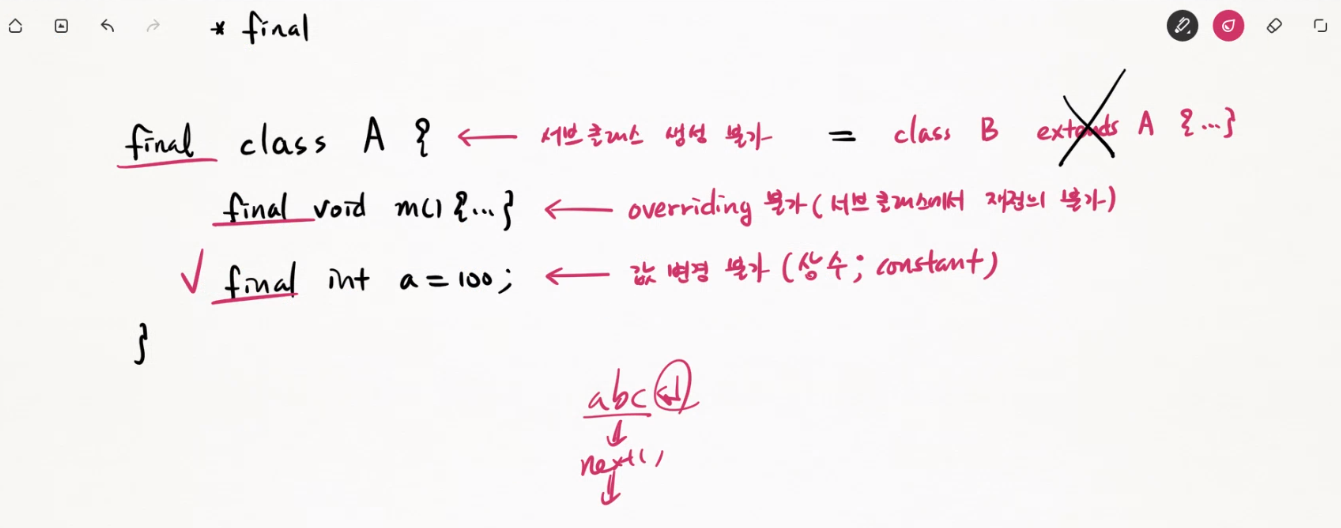 * final
final class A { ← 서브클래스 생성 불가 = class B extends A {...}
final void m() {...} ← overriding 불가 (서브클래스에서 재정의 불가)
✓ final int a = 100; ← 값 변경 불가 (상수; constant)
}
abc ↵
↓
next()
↓